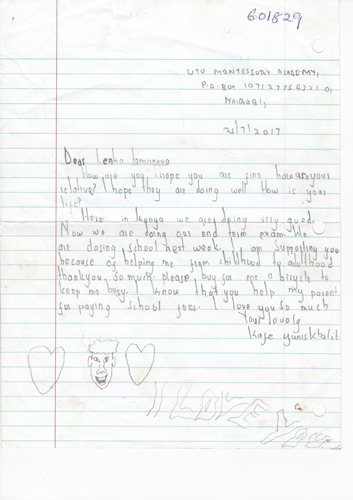 601829
UTU MONTESSORY ACADEMY,
P.O. BOX
NAIROBI,
21/7/2017
Dear Lenka
How are you i hope you are fine how are yous
relative? I hope they are doing well How is your
life?
Here in kenya we are doing very good.
Now we are doing our end term exam. We
are closing school next week. I am supporting you
because of helping me from childhood to adulthood
thankyou so much. please buy for me a bicycle to
keep me busy. I know that you help my parent
for paying school fees. I love you so much
Your lovely
I LOVE YOU